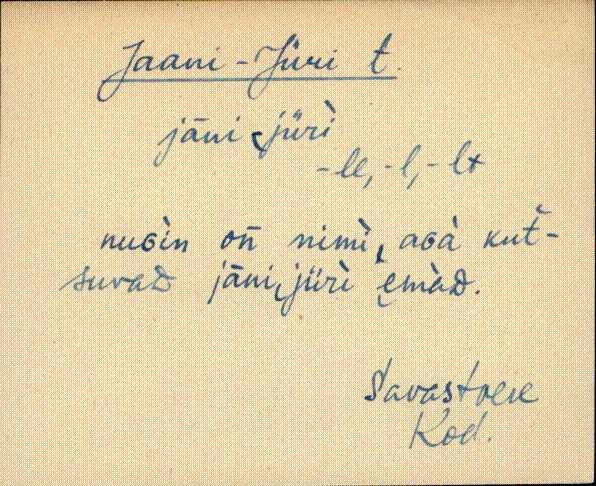 Jaani-Jüri t.
jāni jürì
-le, -l, -lt
nuGìn on̄ nimì, aGà kut̆-
suvaD jāni jüri emàD.
Savastvere
Kod.